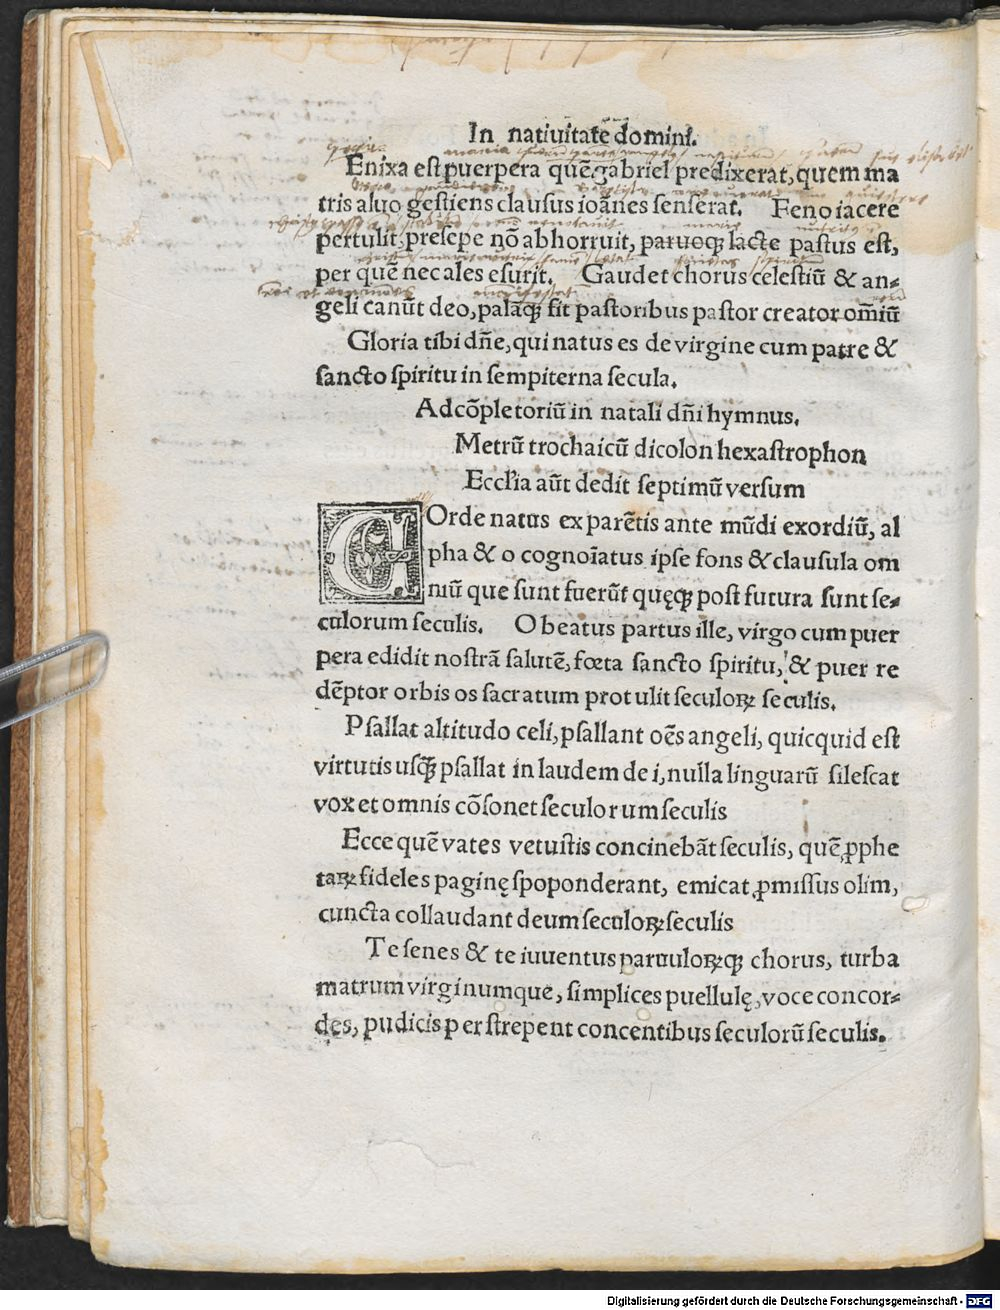 In natiuitate domini.
Enixa est puerpera quē gabriel predixerat, quem ma
tris aluo gestiens clausus ioānes senserat. Feno iacere
pertulit, presepe nō abhorruit, paruoqꝫ lacte pastus est,
per quē nec ales esurit. Gaudet chorus celestiū & an⸗
geli canūt deo, palāqꝫ fit pastoribus pastor creator om̄iū
Gloria tibi dn̄e, qui natus es de virgine cum patre &
sancto spiritu in sempiterna secula.
Ad cōpletoriū in natali dn̄i hymnus.
Metrū trochaicū dicolon hexastrophon
Eccl'ia aūt dedit septimū versum
COrde natus ex parētis ante mūdi exordiū, al
pha & o cognoīatus ipse fons & clausula om
niū que sunt fuerūt quęqꝫ post futura sunt se⸗
culorum seculis. O beatus partus ille, virgo cum puer
pera edidit nostrā salutē, fœta sancto spiritu, & puer re
dēptor orbis os sacratum protulit seculoꝝ seculis.
Psallat altitudo celi, psallant oēs angeli, quicquid est
virtutis usqꝫ psallat in laudem dei, nulla linguarū silescat
vox et omnis cōsonet seculorum seculis
Ecce quē vates vetustis concinebāt seculis, quē ꝓphe
taꝝ fideles paginę spoponderant, emicat ꝓmissus olim,
cuncta collaudant deum seculoꝝ seculis
Te senes & te iuuentus paruuloꝝqꝫ chorus, turba
matrum virginumque, simplices puellulę, voce concor⸗
des, pudicis perstrepent concentibus seculorū seculis.
Digitalisierung gefördert durch die Deutsche Forschungsgemeinschaft - DFG